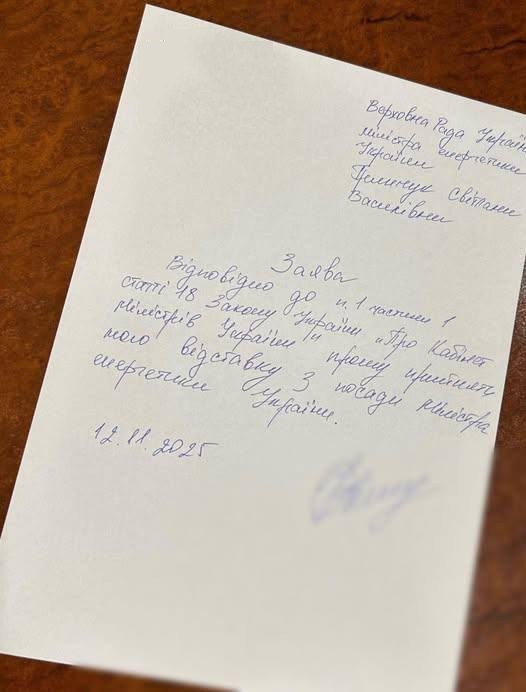 Верховна Рада Україн
міністра енергетики
України
Гринчук Світлани
Василівни
Заява
Відповідно до п.1 частини 1
статті 18 Закону України „Про Кабінет
Міністрів України" прошу прийняти
мою відставку з посади міністра
енергетики України.
12.11.2025